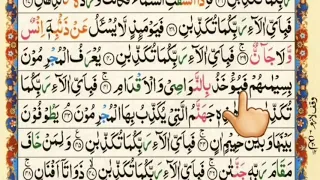 فَبِاَيِّ اٰلَآءِ رَبِّكُمَا تُكَذِّبٰنِ ﴿۳۸﴾ فَيَوْمَئِذٍ لَّا يُسْـَٔلُ عَنْ ذَنْۢبِهٖٓ اِنْسٌ
وَّلَا جَآنٌّ ﴿۳۹﴾ فَبِاَيِّ اٰلَآءِ رَبِّكُمَا تُكَذِّبٰنِ ﴿۴۰﴾ يُعْرَفُ الْمُجْرِمُوْنَ
بِسِيْمٰهُمْ فَيُؤْخَذُ بِالنَّوَاصِيْ وَالْاَقْدَامِ ﴿۴۱﴾ فَبِاَيِّ اٰلَآءِ رَبِّكُمَا
تُكَذِّبٰنِ جَهَنَّمُ الَّتِيْ يُكَذِّبُ بِهَا الْمُجْرِمُوْنَ ﴿۴۳﴾ يَطُوْفُوْنَ
بَيْنَهَا وَبَيْنَ حَمِيْمٍ اٰنٍ ﴿۴۴﴾ فَبِاَيِّ اٰلَآءِ رَبِّكُمَا تُكَذِّبٰنِ ﴿۴۵﴾ وَلِمَنْ خَافَ
مَقَامَ رَبِّهٖ جَنَّتٰنِ ﴿۴۶﴾ فَبِاَيِّ اٰلَآءِ رَبِّكُمَا تُكَذِّبٰنِ ﴿۴۷﴾ ذَوَاتَآ اَفْنَانٍ ﴿۴۸﴾